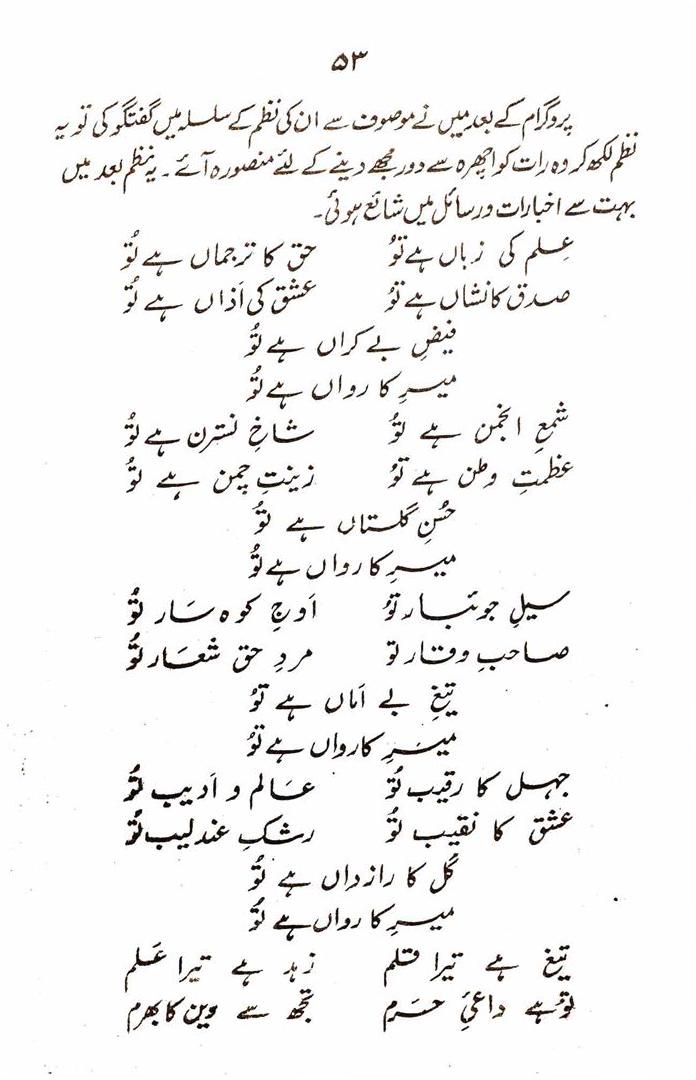 ۵۳
پروگرام کے بعد میں نے موصوف سے ان کی نظم کے سلسلہ میں گفتگو کی تو یہ
نظم لکھ کر وہ رات کو اچھرہ سے دور مجھے دینے کے لئے منصورہ آئے۔ یہ نظم بعد میں
بہت سے اخبارات و رسائل میں شائع ہوئی۔
عِلم کی زباں ہے تُو حق کا ترجماں ہے تُو
صدق کا نشاں ہے تُو عشق کی اَذاں ہے تُو
فیضِ بے کراں ہے تُو
میرِ کارواں ہے تُو
شمعِ انجمن ہے تُو شاخِ نسترن ہے تُو
عظمتِ وطن ہے تُو زینتِ چمن ہے تُو
حُسنِ گلستاں ہے تُو
میرِ کارواں ہے تُو
سیلِ جوئبار تُو اَوجِ کوہسَار تُو
صاحبِ وقار تو مردِ حق شعَار تُو
تیغِ بے اَماں ہے تُو
میَرِ کارواں ہے تُو
جہل کا رقیب تُو عَالم و اَدیب تُو
عشق کا نقیب تُو رشکِ عندلیب تُو
گل کا رازداں ہے تُو
میرِ کارواں ہے تُو
تیغ ہے تیرا قلم زہد ہے تیرا عَلم
تُو ہے داعیِٔ حَرم تجھ سے دین کا بھرم